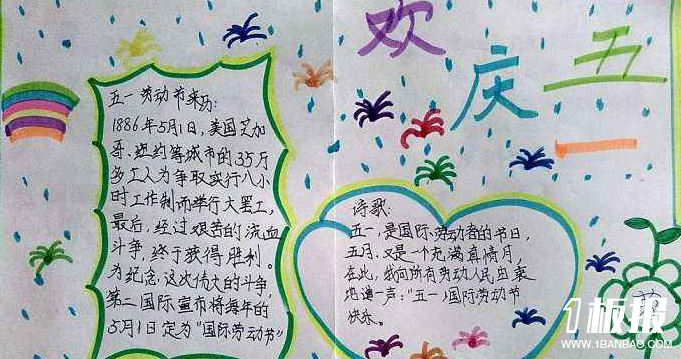 欢庆五一
五一劳动节来历:
1886年5月1日,美国芝加
哥、纽约等城市的35万
多工人为争取实行八小
时工作制而举行大罢工,
最后,经过艰苦的流血
斗争,终于获得胜利。
为纪念这次伟大的斗争,
第二国际宣布将每年的
5月1日定为“国际劳动节”
诗歌:
五一,是国际劳动者的节日,
五月,又是一个充满真情月,
在此,我向所有劳动人民由衷
地道一声:“五一”国际劳动节
快乐。
1板报
WWW.1BANBAO.COM